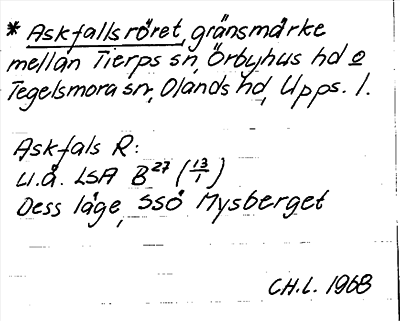 * Askfallsröret, gränsmärke
mellan Tierps sn, Örbyhus hd o
Tegelsmora sn, Olands hd, Upps. l.
Askfals R:
u.å. LSA B²⁷ (13/1)
Dess läge, SSO Mysberget
CH.L. 1968